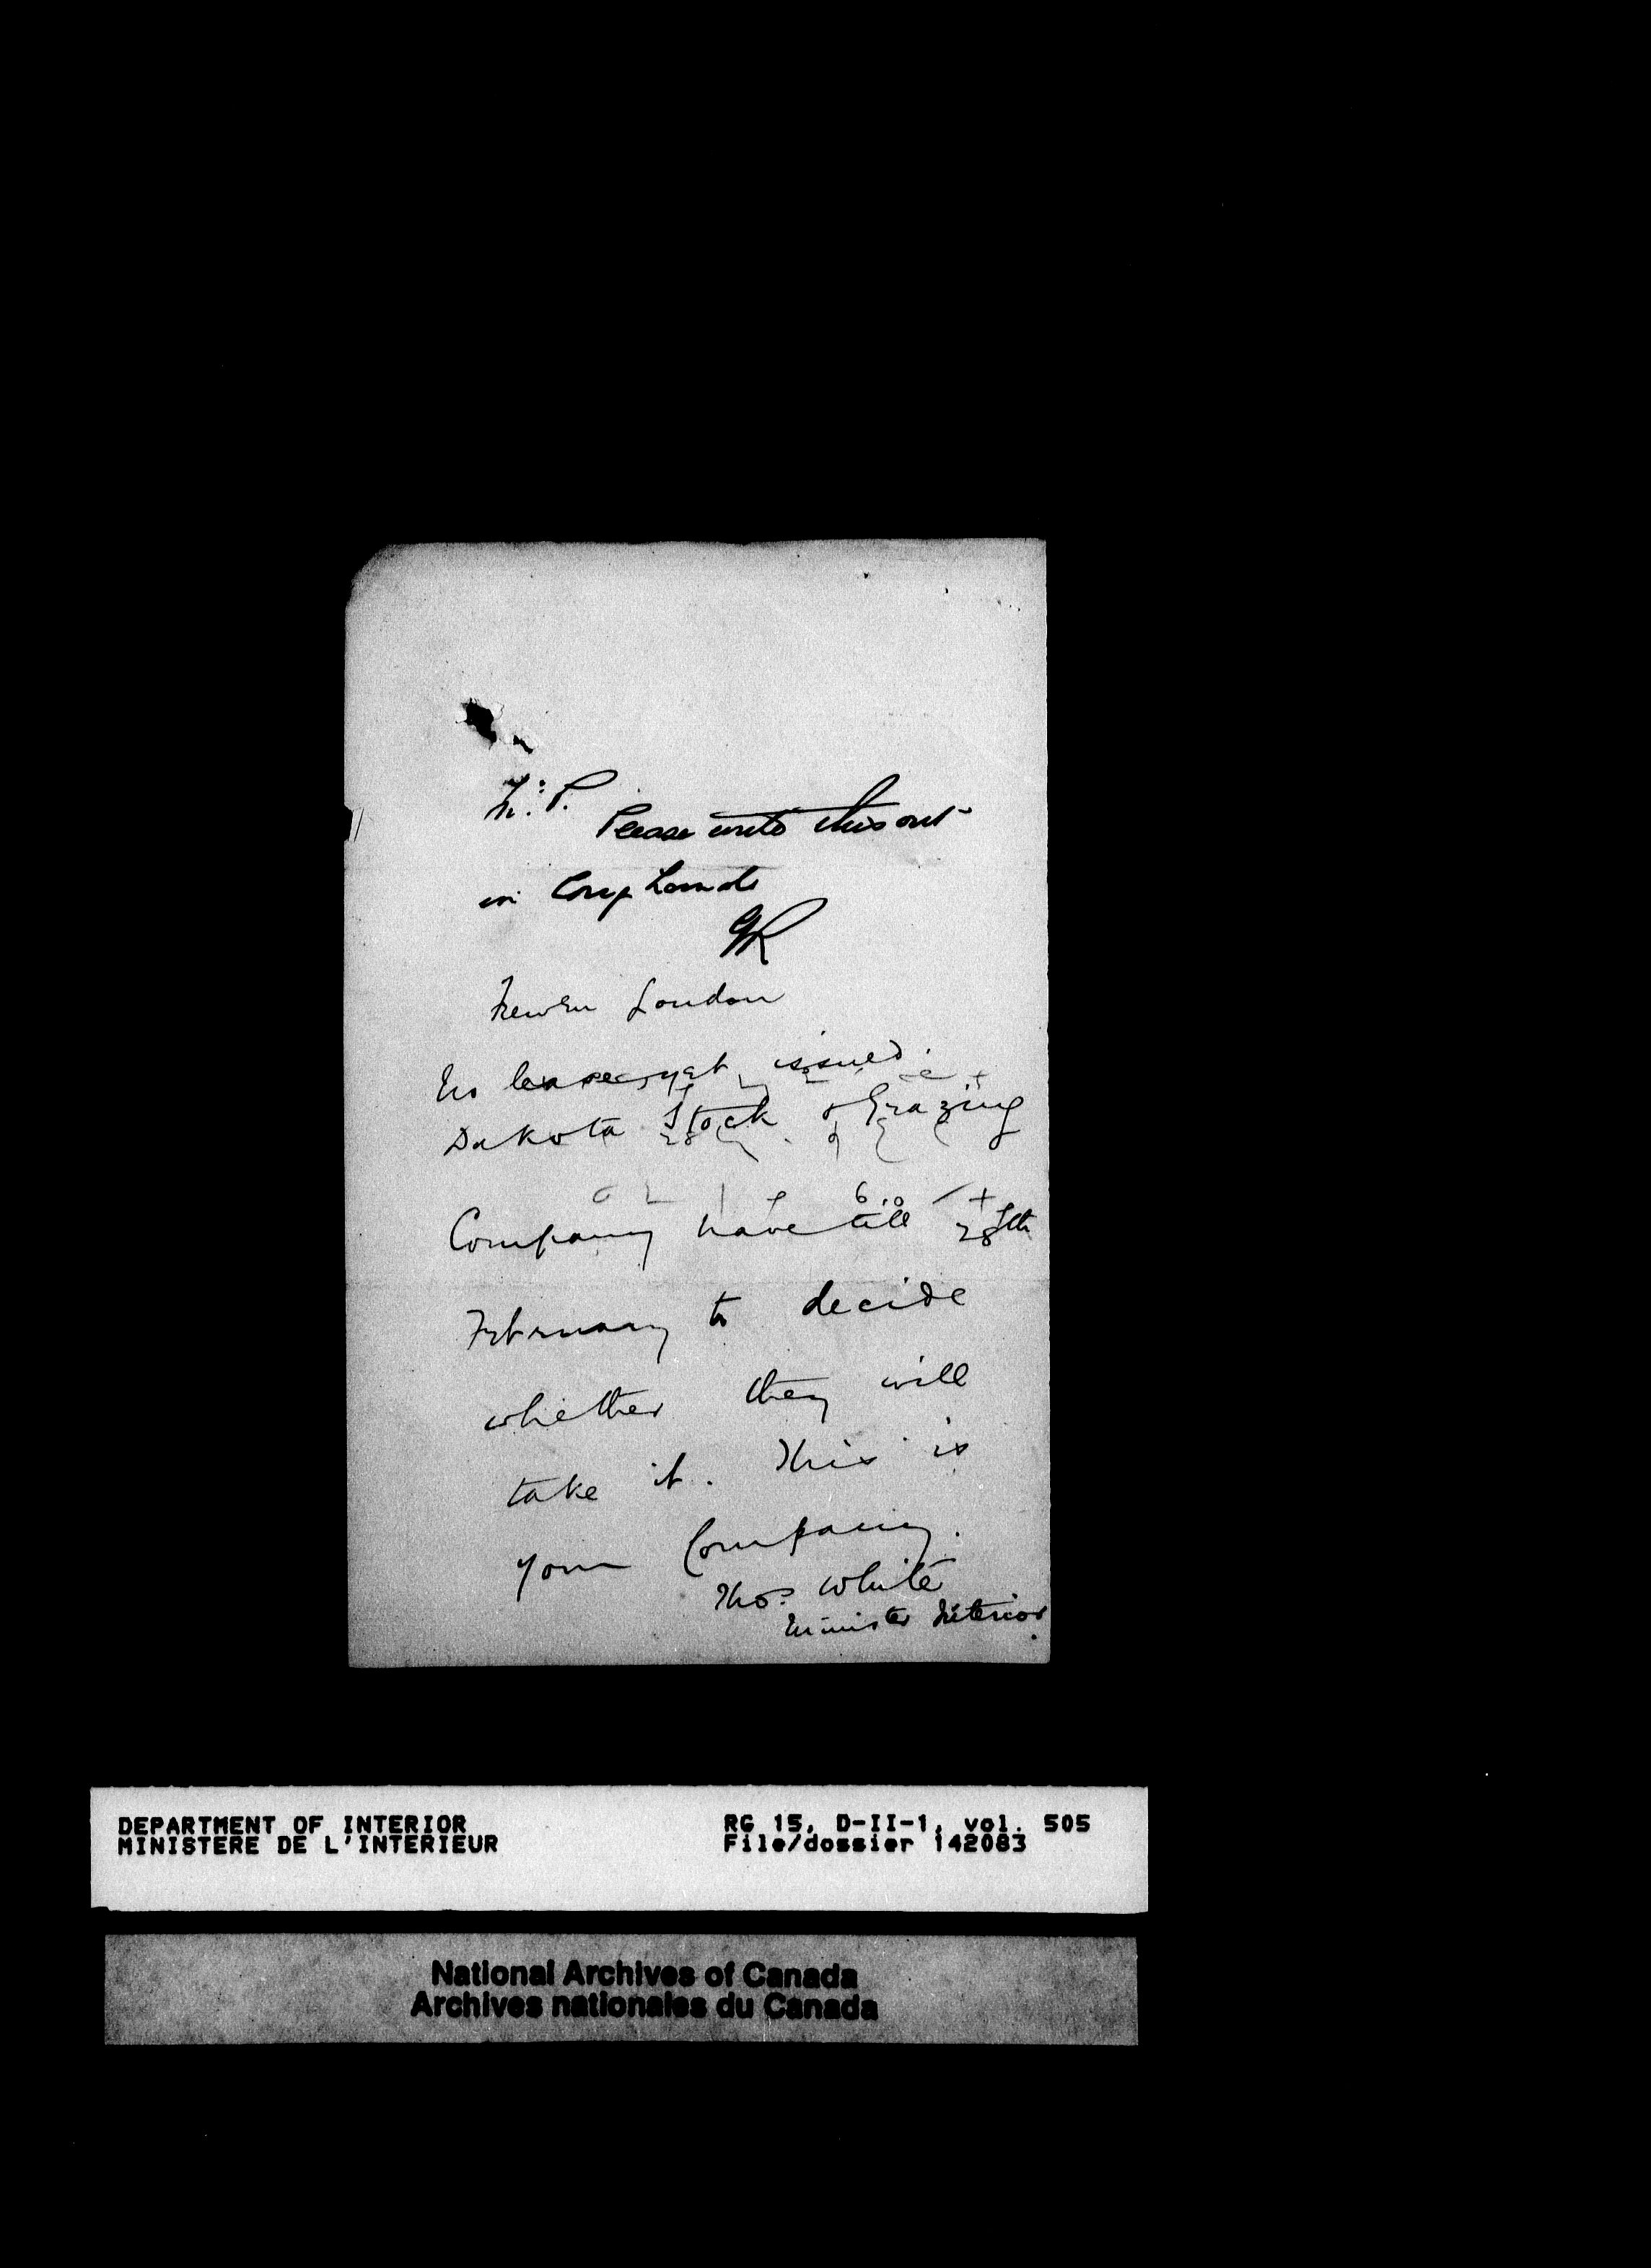 Please write this out
in long hand
GR
Frewen London
No lease yet issued.
Dakota Stock & Grazing
Company have till 28th
February to decide
whether they will
take it. This is
your Company.
Thos. White
Minister Interior
DEPARTMENT OF INTERIOR
MINISTERE DE L'INTERIEUR
RG 15, D-II-1, vol. 505
File/dossier 142083
National Archives of Canada
Archives nationales du Canada